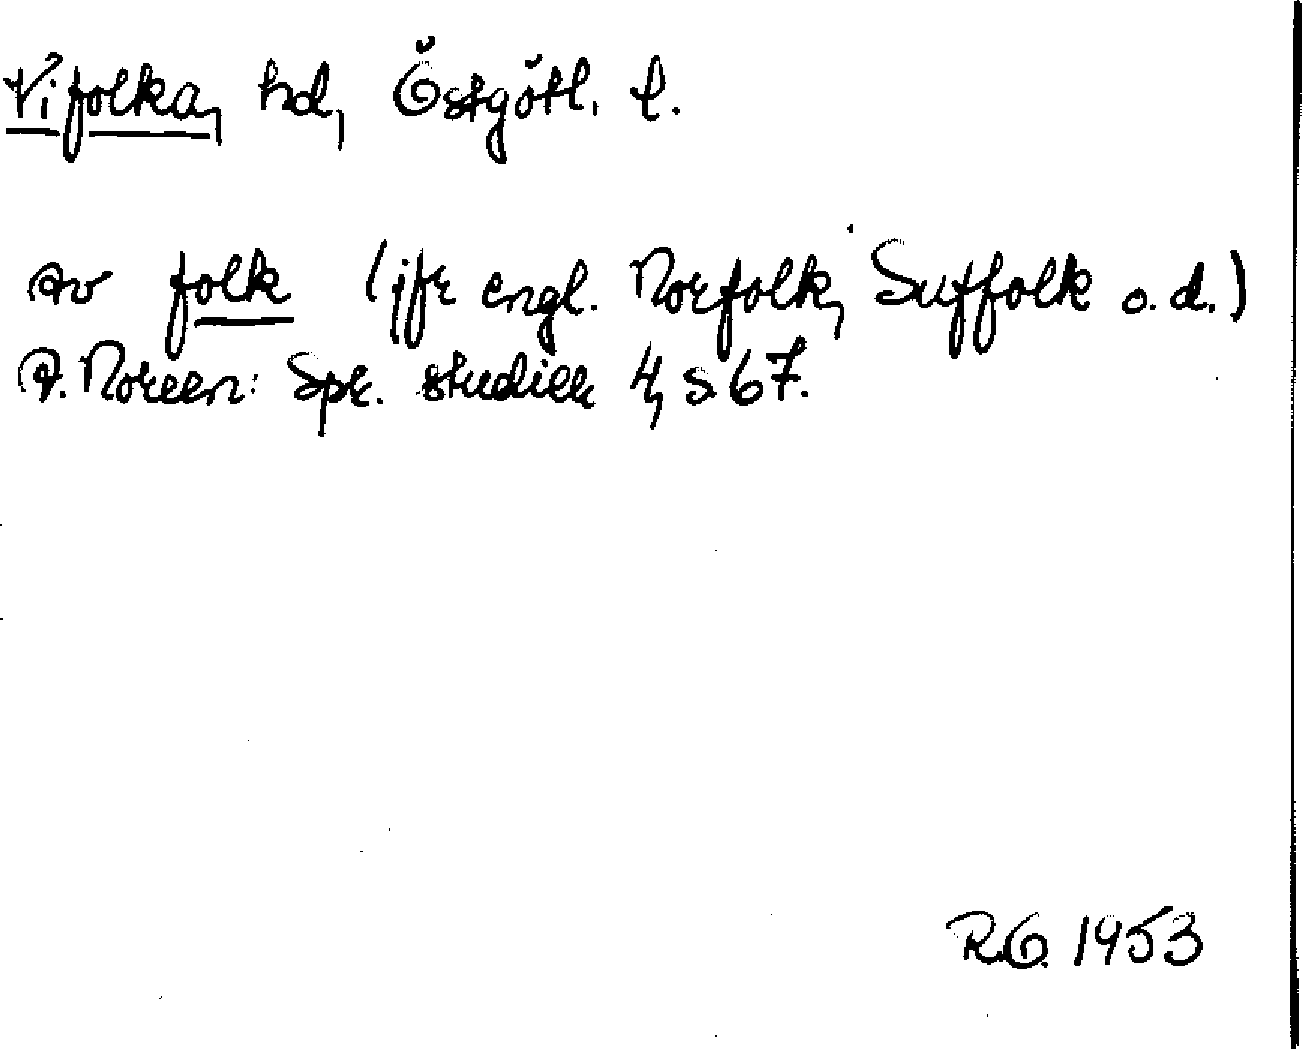 Vifolka, hd, Östgötl. l.
av folk (jfr engl. Norfolk, Suffolk o. d.)
A. Noreen: Spr. studier 4, s 67.
R.O. 1953